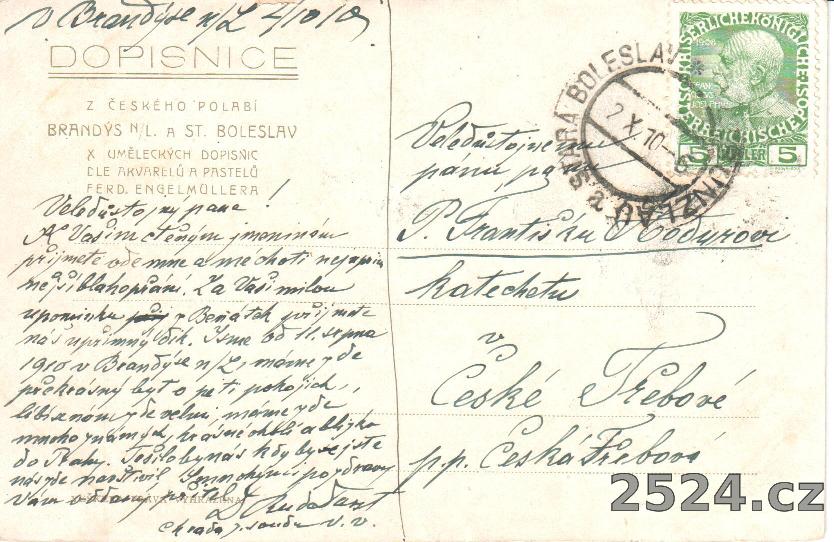 v Brandýse n/L 2/10/10
DOPISNICE
Z ČESKÉHO POLABÍ
BRANDÝS N/L. A ST. BOLESLAV
X UMĚLECKÝCH DOPISNIC
DLE AKVARELŮ A PASTELŮ
FERD. ENGELMÜLLERA
Veledůstojný pane!
K Vašim ctěným jmeninám
přijměte ode mne a mé choti nejupřím
nější blahopřání. Za Vaši milou
upomínku z Benátek přijměte
náš upřímný dík. Jsme od 11. srpna
1910 v Brandýse n/L, máme zde
překrásný byt o pěti pokojích,
líbí se nám zde velmi, máme zde
mnoho známých, krásné okolí a blízko
do Prahy. Těšilo by nás kdyby ste jste
nás zde navštívil. S mnohými pozdravy
Vám oddaný přítel
c k rada z. soudu v. v.
VYHRAZENA
STARÁ BOLESLAV
2 X 10
BUNZLAU
KAISERLICHE KÖNIGLICHE
ÖSTERREICHISCHE POST
1908
5 HELLER 5
Veledůstojnému
pánu panu
P. Františku
katechetu
v
České Třebové
p.p. Česká Třebová
2524.cz